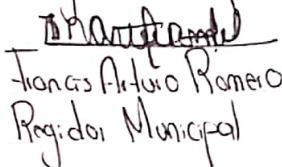 Francis Arturo Romero
Regidor Municipal